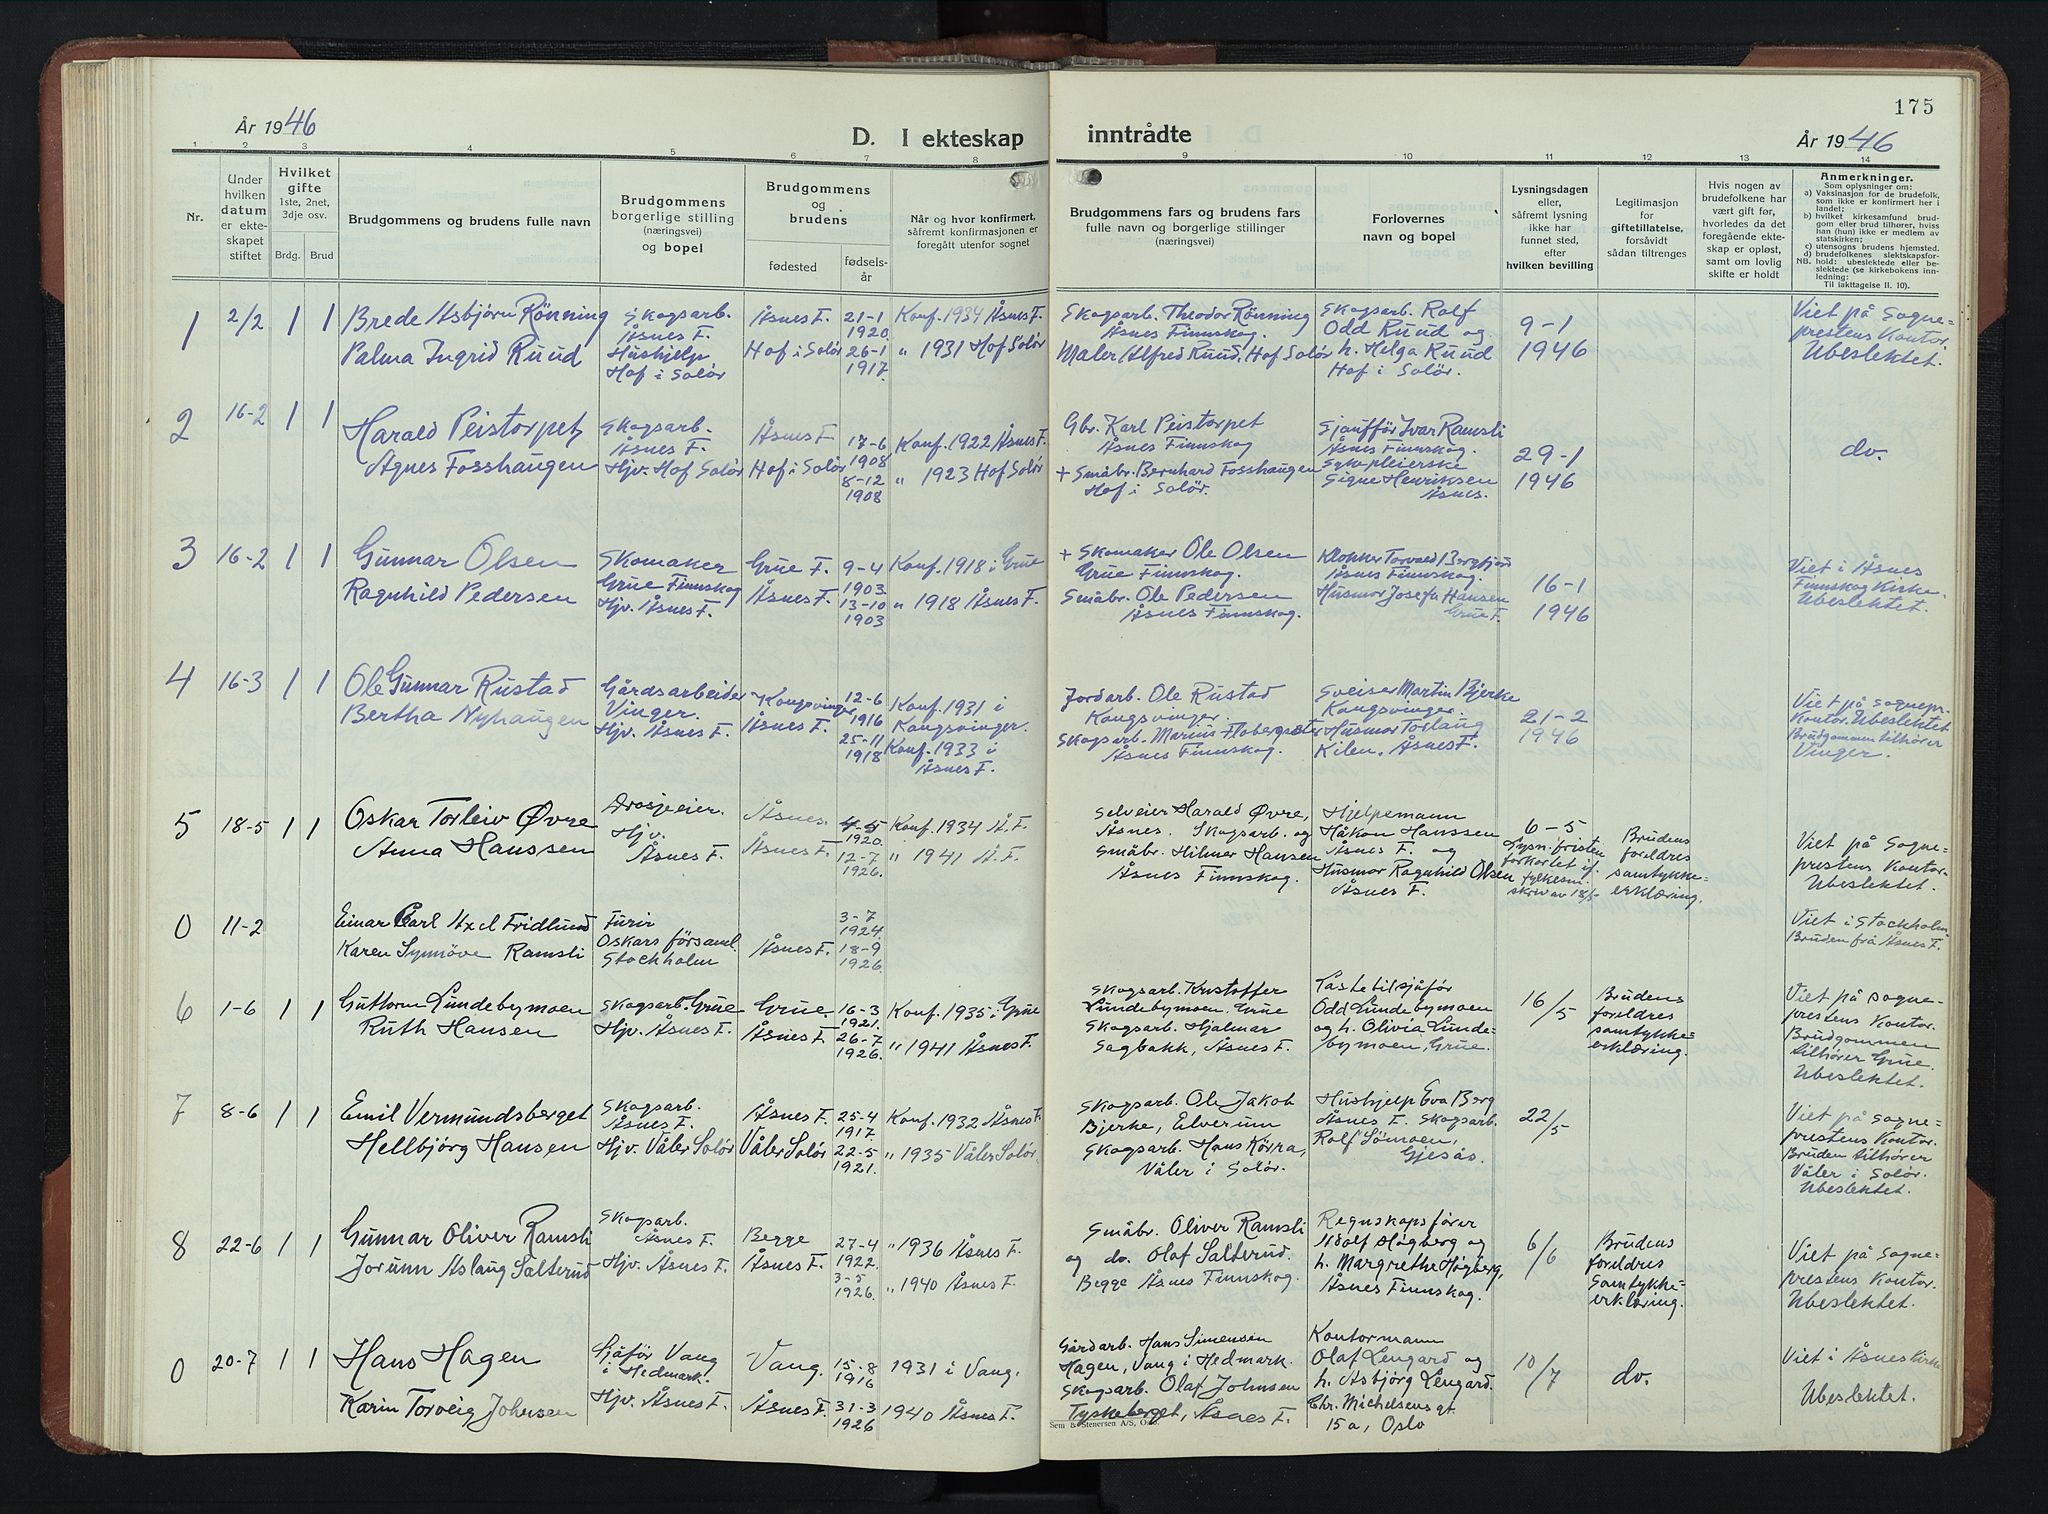 175
År 1946
D. I ekteskap
inntrådte
År 1946
1 2 3 4 5 6 7 8 9 10 11 12 13 14
Nr.
Under hvilken datum er ekteskapet stiftet
Hvilket gifte 1ste, 2net, 3dje osv.
Brdg. Brud
Brudgommens og brudens fulle navn
Brudgommens borgerlige stilling (næringsvei) og bopel
Brudgommens og brudens
fødested
fødselsår
Når og hvor konfirmert, såfremt konfirmasjonen er foregått utenfor sognet
Brudgommens fars og brudens fars fulle navn og borgerlige stillinger (næringsvei)
Forlovernes navn og bopel
Lysningsdagen eller, såfremt lysning ikke har funnet sted, efter hvilken bevilling
Legitimasjon for giftetillatelse, forsåvidt sådan tiltrenges
Hvis nogen av brudefolkene har vært gift før, hvorledes da det foregående ekteskap er opløst, samt om lovlig skifte er holdt
Anmerkninger.
Som oplysninger om:
a) Vaksinasjon for de brudefolk, som ikke er konfirmert her i landet;
b) hvilket kirkesamfund brudgom eller brud tilhører, hviss han (hun) ikke er medlem av statskirken;
c) utensogns brudens hjemsted.
d) brudefolkenes slektskapsforhold: ubeslektede eller beslektede (se kirkebokens innledning:
NB. Til iakttagelse II. 10).
1 2/2 1 1 Brede Asbjørn Rönning
Palma Ingrid Ruud
Skogsarb.
Åsnes F.
Hushjelp
Hof i Solör
Åsnes F.
Hof i Solör
21-1
1920
26-1
1917.
Konf. 1934 Åsnes F.
" 1931 Hof Solör
Skogsarb. Theodor Rönning
Åsnes Finnskog.
Maler, Alfred Ruud, Hof Solör
Skogsarb. Rolf
Odd Ruud og
h. Helga Ruud
Hof i Solör.
9-1
1946
Viet på Sogne-
prestens Kontor.
Ubeslektet.
2 16-2 1 1 Harald Peistorpet
Agnes Fosshaugen
Skogsarb.
Åsnes F.
Hjv. Hof Solör
Åsnes F
Hof i Solör
17-6
1908
8-12
1908
Konf. 1922 Åsnes F.
" 1923 Hof Solör
Gbr. Karl Peistorpet
Åsnes Finnskog
+ Småbr. Bernhard Fosshaugen
Hof i Solör.
Sjaufför Ivar Ramsli
Åsnes Finnskog.
Sykepleierske
Signe Henriksen
Åsnes.
29-1
1946
do.
3 16-2 1 1 Gunnar Olsen
Ragnhild Pedersen
Skomaker
Grue Finnskog
Hjv. Åsnes F.
Grue F.
Åsnes F.
9-4
1903
13-10
1903
Konf. 1918 i Grue
" 1918 Åsnes F.
+ Skomaker Ole Olsen
Grue Finnskog.
Småbr. Ole Pedersen
Åsnes Finnskog.
Klokker Torvald
Åsnes Finnskog.
Husmor Josefa Hansen
Grue F.
16-1
1946
Viet i Åsnes
Finnskog Kirke.
Ubeslektet.
4 16-3 1 1 Ole Gunnar Rustad
Bertha Nyhaugen
Gårdsarbeider
Vinger.
Hjv. Åsnes F.
Kongsvinger
Åsnes F.
12-6
1916
25-11
1918
Konf. 1931 i
Kongsvinger.
Konf. 1933 i
Åsnes F.
Jordarb. Ole Rustad
Kongsvinger.
Skogsarb. Marius Flobergseter
Åsnes Finnskog.
Sveiser Martin Bjerke
Kongsvinger.
Husmor Torlaug
Kilen, Åsnes F.
21-2
1946
Viet på Sognepr.
Kontor. Ubeslektet
Brudgommen tilhører
Vinger.
5 18-5 1 1 Oskar Torleiv Øvre
Anna Hanssen
Drosjeeier.
Hjv.
Åsnes F.
Åsnes.
Åsnes F.
4-5
1920.
12-7
1926.
Konf. 1934 Å. F.
" 1941 Å. F.
Selveier Harald Øvre,
Åsnes. Skogsarb. og
Småbr. Hilmer Hansen
Åsnes Finnskog.
Hjelpemann
Håkon Hanssen
Åsnes F. og
Husmor Ragnhild Olsen
Åsnes F.
6-5
Lysn. fristen
forkortet if.
fylkesm.
skriv av 18/5
Brudens
foreldres
samtykke-
erklæring.
Viet på Sogne-
prestens Kontor.
Ubeslektet.
0 11-2 Einar Carl Axel Fridlund
Karen Synnöve Ramsli
Furir
Oskars församl.
Stockholm
Åsnes F.
3-7
1924.
18-9
1926.
Viet i Stockholm
Bruden frå Åsnes F.
6 1-6 1 1 Guttorm Lundebymoen
Ruth Hansen
Skogsarb. Grue
Hjv. Åsnes F.
Grue
Åsnes F.
16-3
1921.
26-7
1926.
Konf. 1935 i Grue
" 1941 Åsnes F.
Skogsarb. Kristoffer
Lundebymoen, Grue
Skogsarb. Hjalmar
Sagbakk, Åsnes F.
Lastebilsjåför
Odd Lundebymoen
og h. Olivia Lunde-
bymoen, Grue.
16/5
Brudens
foreldres
samtykke-
erklæring.
Viet på Sogne-
prestens Kontor.
Brudgommen
tilhører Grue.
Ubeslektet.
7 8-6 1 1 Emil Vermundsberget
Hellbjörg Hansen
Skogsarb.
Åsnes F.
Hjv. Våler Solör
Åsnes F.
Våler Solör
25-4
1917
22-5
1921.
Konf. 1932 Åsnes F.
" 1935 Våler Solör.
Skogsarb. Ole Jakob
Bjerke, Elverum
Skogsarb. Hans Körra,
Våler i Solör.
Hushjelp Eva Berg
Åsnes F. Skogsarb.
Rolf Sömoen,
Gjesås.
22/5
Viet på Sogne-
prestens Kontor.
Bruden tilhører
Våler i Solör.
Ubeslektet.
8 22-6 1 1 Gunnar Oliver Ramsli
Jorunn Aslaug Salterud
Skogsarb.
Åsnes F.
Hjv. Åsnes F.
Begge
Åsnes F.
27-4
1922.
3-5
1926.
" 1936 Åsnes F.
" 1940 Åsnes F.
Småbr. Oliver Ramsli
og do. Olaf Salterud.
Begge Åsnes Finnskog.
Regnskapsfører
Adolf Høgberg og
h. Margrethe Høgberg,
Åsnes Finnskog.
6/6
Brudens
foreldres
Samtykke-
erklæring.
Viet på Sogne-
prestens Kontor.
Ubeslektet.
0 20-7 1 1 Hans Hagen
Karin Torveig Johnsen
Sjåför Vang
i Hedmark.
Hjv. Åsnes F.
Vang.
Åsnes F.
15-8
1916
31-3
1926
1931 i Vang.
1940 Åsnes F.
Gårdarb. Hans Simensen
Hagen, Vang i Hedmark.
Skogsarb. Olaf Johnsen
Tyskeberget, Åsnes F.
Kontormann
Olaf Lengard og
h. Asbjörg Lengard.
Chr. Michelsens gt.
15a, Oslo
10/7
do.
Viet i Åsnes Kirke
Ubeslektet.
Sem & Stenersen A/S, Oslo.